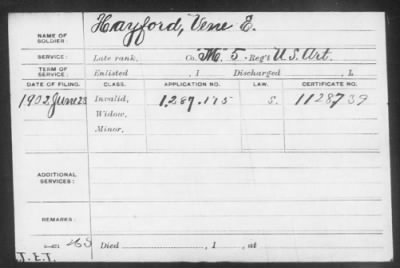 NAME OF SOLDIER: Hayford, Vene E.
SERVICE: Late rank, Co. M. 5 Reg't U.S. Art.
TERM OF SERVICE: Enlisted , 1 Discharged , 1.
DATE OF FILING. CLASS. APPLICATION NO. LAW. CERTIFICATE NO.
1902 June 23 Invalid, 1,287,175 S. 1128739
Widow,
Minor,
ADDITIONAL SERVICES:
REMARKS:
Died , 1 , at